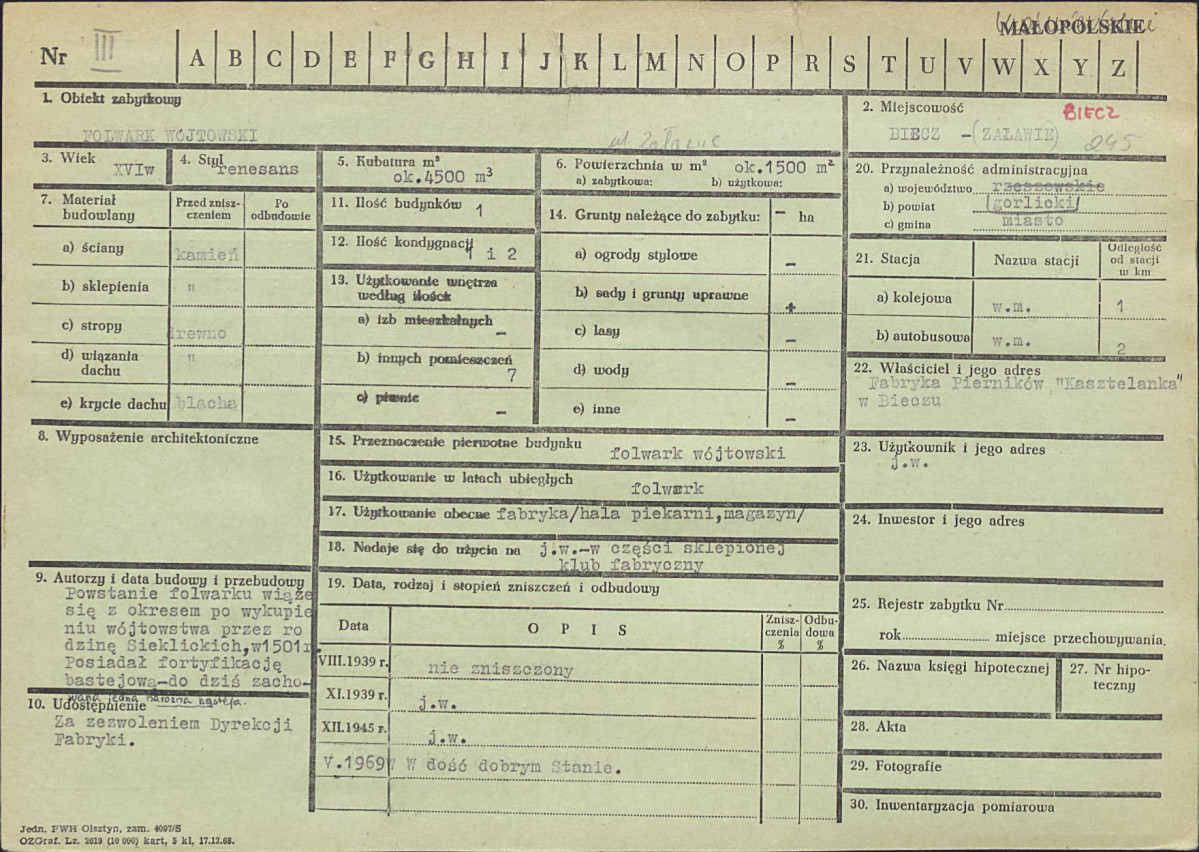 MAŁOPOLSKIE
Nr III A B C D E F G H I J K L M N O P R S T U V W X Y Z
1. Obiekt zabytkowy
FOLWARK WÓJTOWSKI
ul Załawie
2. Miejscowość
BIECZ
BIECZ -(ZAŁAWIE)
245
3. Wiek
XVIw
4. Styl
renesans
5. Kubatura m³
ok.4500 m³
6. Powierzchnia w m² ok.1500 m²
a) zabytkowa: b) użytkowa:
7. Materiał budowlany
Przed zniszczeniem
Po odbudowie
a) ściany kamień
b) sklepienia "
c) stropy drewno
d) wiązania dachu "
e) krycie dachu blacha
8. Wyposażenie architektoniczne
9. Autorzy i data budowy i przebudowy
Powstanie folwarku wiąże
się z okresem po wykupie
niu wójtostwa przez ro
dzinę Sieklickich,w1501r.
Posiadał fortyfikację
bastejową-do dziś zacho-
wana jedna narożna basteja.
10. Udostępnienie
Za zezwoleniem Dyrekcji
Fabryki.
11. Ilość budynków 1
12. Ilość kondygnacji
1 i 2
13. Użytkowanie wnętrza
według ilości
a) izb mieszkalnych -
b) innych pomieszczeń
7
c) piwnic -
14. Grunty należące do zabytku: - ha
a) ogrody stylowe -
b) sady i grunty uprawne +
c) lasy -
d) wody -
e) inne -
15. Przeznaczenie pierwotne budynku
folwark wójtowski
16. Użytkowanie w latach ubiegłych
folwark
17. Użytkowanie obecne fabryka/hala piekarni,magazyn/
18. Nadaje się do użycia na j.w.-w części sklepionej
klub fabryczny
19. Data, rodzaj i stopień zniszczeń i odbudowy
Data
O P I S
Zniszczenia %
Odbudowa %
VIII.1939 r. nie zniszczony
XI.1939 r. j.w.
XII.1945 r. j.w.
V.1969 W dość dobrym Stanie.
20. Przynależność administracyjna
a) województwo rzeszowskie
b) powiat (gorlicki)
c) gmina miasto
21. Stacja
Nazwa stacji
Odległość od stacji w km
a) kolejowa w.m. 1
b) autobusowa w.m. 2
22. Właściciel i jego adres
Fabryka Pierników "Kasztelanka"
w Bieczu
23. Użytkownik i jego adres
j.w.
24. Inwestor i jego adres
25. Rejestr zabytku Nr
rok miejsce przechowywania.
26. Nazwa księgi hipotecznej
27. Nr hipoteczny
28. Akta
29. Fotografie
30. Inwentaryzacja pomiarowa
Jedn. PWH Olsztyn, zam. 4097/S
OZGraf. Lz. 2619 (10 000) kart, 5 kl, 17.12.68.